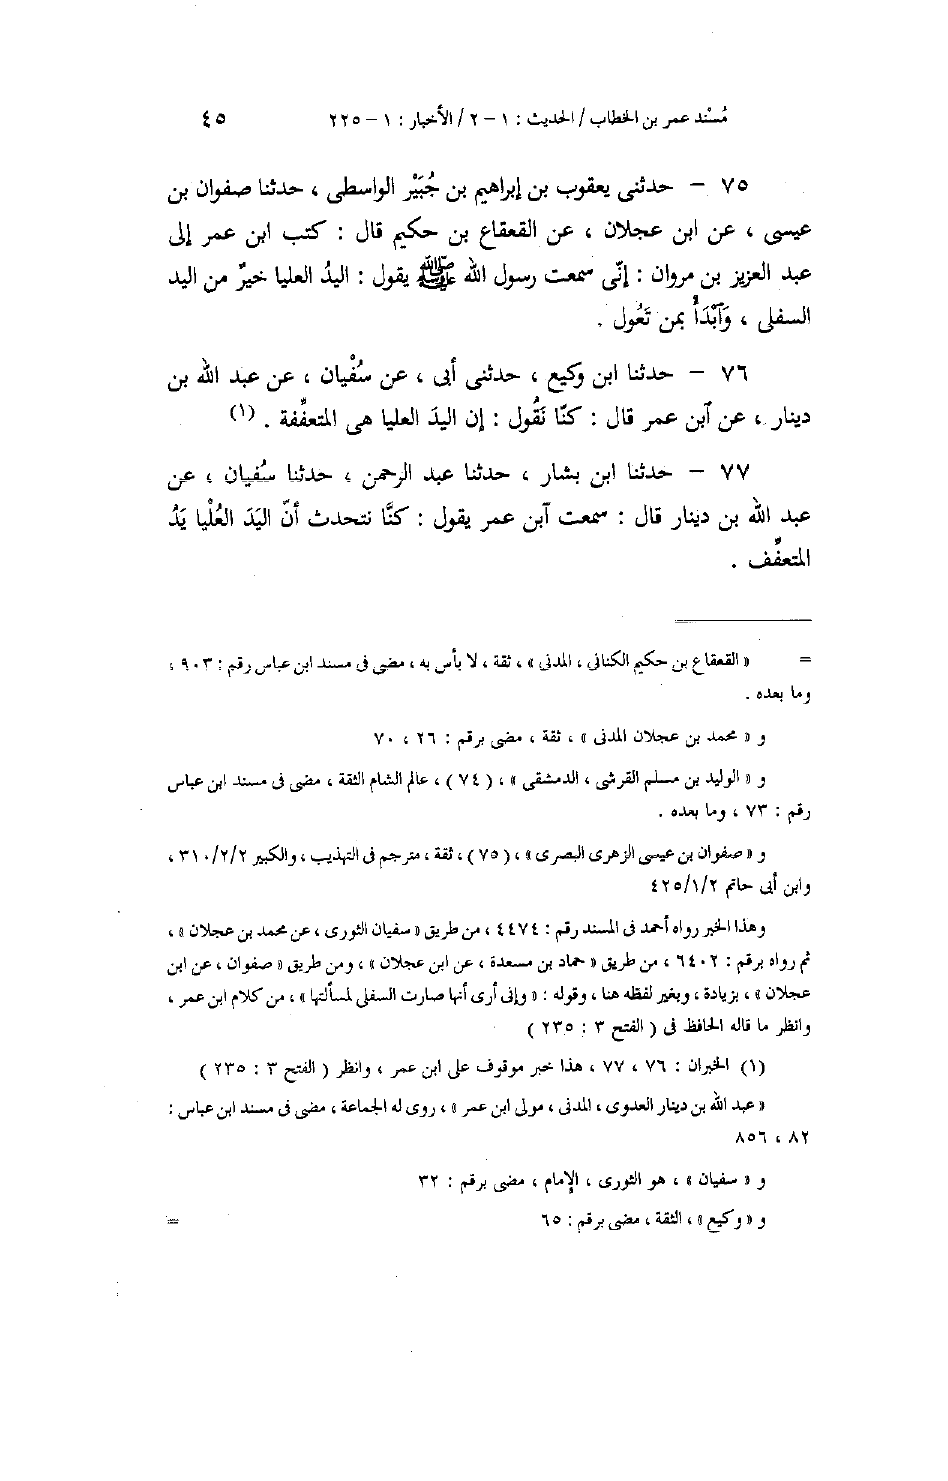 مُسْند عمر بن الخطاب / الحديث : ١ - ٢ / الأخبار : ١ - ٢٢٥ ٤٥
٧٥ - حدثنى يعقوب بن إبراهيم بن جُبَيْر الواسطى ، حدثنا صفوان بن
عيسى ، عن ابن عجلان ، عن القعقاع بن حكيم قال : كتب ابن عمر إلى
عبد العزيز بن مروان : إنّى سمعت رسول الله ﷺ يقول : اليدُ العليا خيرٌ من اليد
السفلى ، وَآبْدَأْ بمن تَعُول .
٧٦ - حدثنا ابن وكيع ، حدثنى أبى ، عن سُفْيان ، عن عبد الله بن
دينار ، عن آبن عمر قال : كنّا نَقُول : إن اليدَ العليا هى المتعفِّفة . (١)
٧٧ - حدثنا ابن بشار ، حدثنا عبد الرحمن ، حدثنا سُفيان ، عن
عبد الله بن دينار قال : سمعت آبن عمر يقول : كنَّا نتحدث أنّ اليَدَ العُلْيا يَدُ
المتعفِّف .
= « القعقاع بن حكيم الكنانى ، المدنى » ، ثقة ، لا بأس به ، مضى فى مسند ابن عباس رقم : ٩٠٣ ،
وما بعده .
و « محمد بن عجلان المدنى » ، ثقة ، مضى برقم : ٢٦ ، ٧٠
و « الوليد بن مسلم القرشى ، الدمشقى » ، ( ٧٤ ) ، عالم الشام الثقة ، مضى فى مسند ابن عباس
رقم : ٧٣ ، وما بعده .
و « صفوان بن عيسى الزهرى البصرى » ، ( ٧٥ ) ، ثقة ، مترجم فى التهذيب ، والكبير ٣١٠/٢/٢ ،
وابن أبى حاتم ٤٢٥/١/٢
وهذا الخبر رواه أحمد فى المسند رقم : ٤٤٧٤ ، من طريق « سفيان الثورى ، عن محمد بن عجلان » ،
ثم رواه برقم : ٦٤٠٢ ، من طريق « حماد بن مسعدة ، عن ابن عجلان » ، ومن طريق « صفوان ، عن ابن
عجلان » ، بزيادة ، وبغير لفظه هنا ، وقوله : « وإنى أرى أنها صارت السفلى لمسألتها » ، من كلام ابن عمر ،
وانظر ما قاله الحافظ فى ( الفتح ٣ : ٢٣٥ )
(١) الخبران : ٧٦ ، ٧٧ ، هذا خبر موقوف على ابن عمر ، وانظر ( الفتح ٣ : ٢٣٥ )
« عبد الله بن دينار العدوى ، المدنى ، مولى ابن عمر » ، روى له الجماعة ، مضى فى مسند ابن عباس :
٨٢ ، ٨٥٦
و « سفيان » ، هو الثورى ، الإمام ، مضى برقم : ٣٢
و « وكيع » ، الثقة ، مضى برقم : ٦٥ =